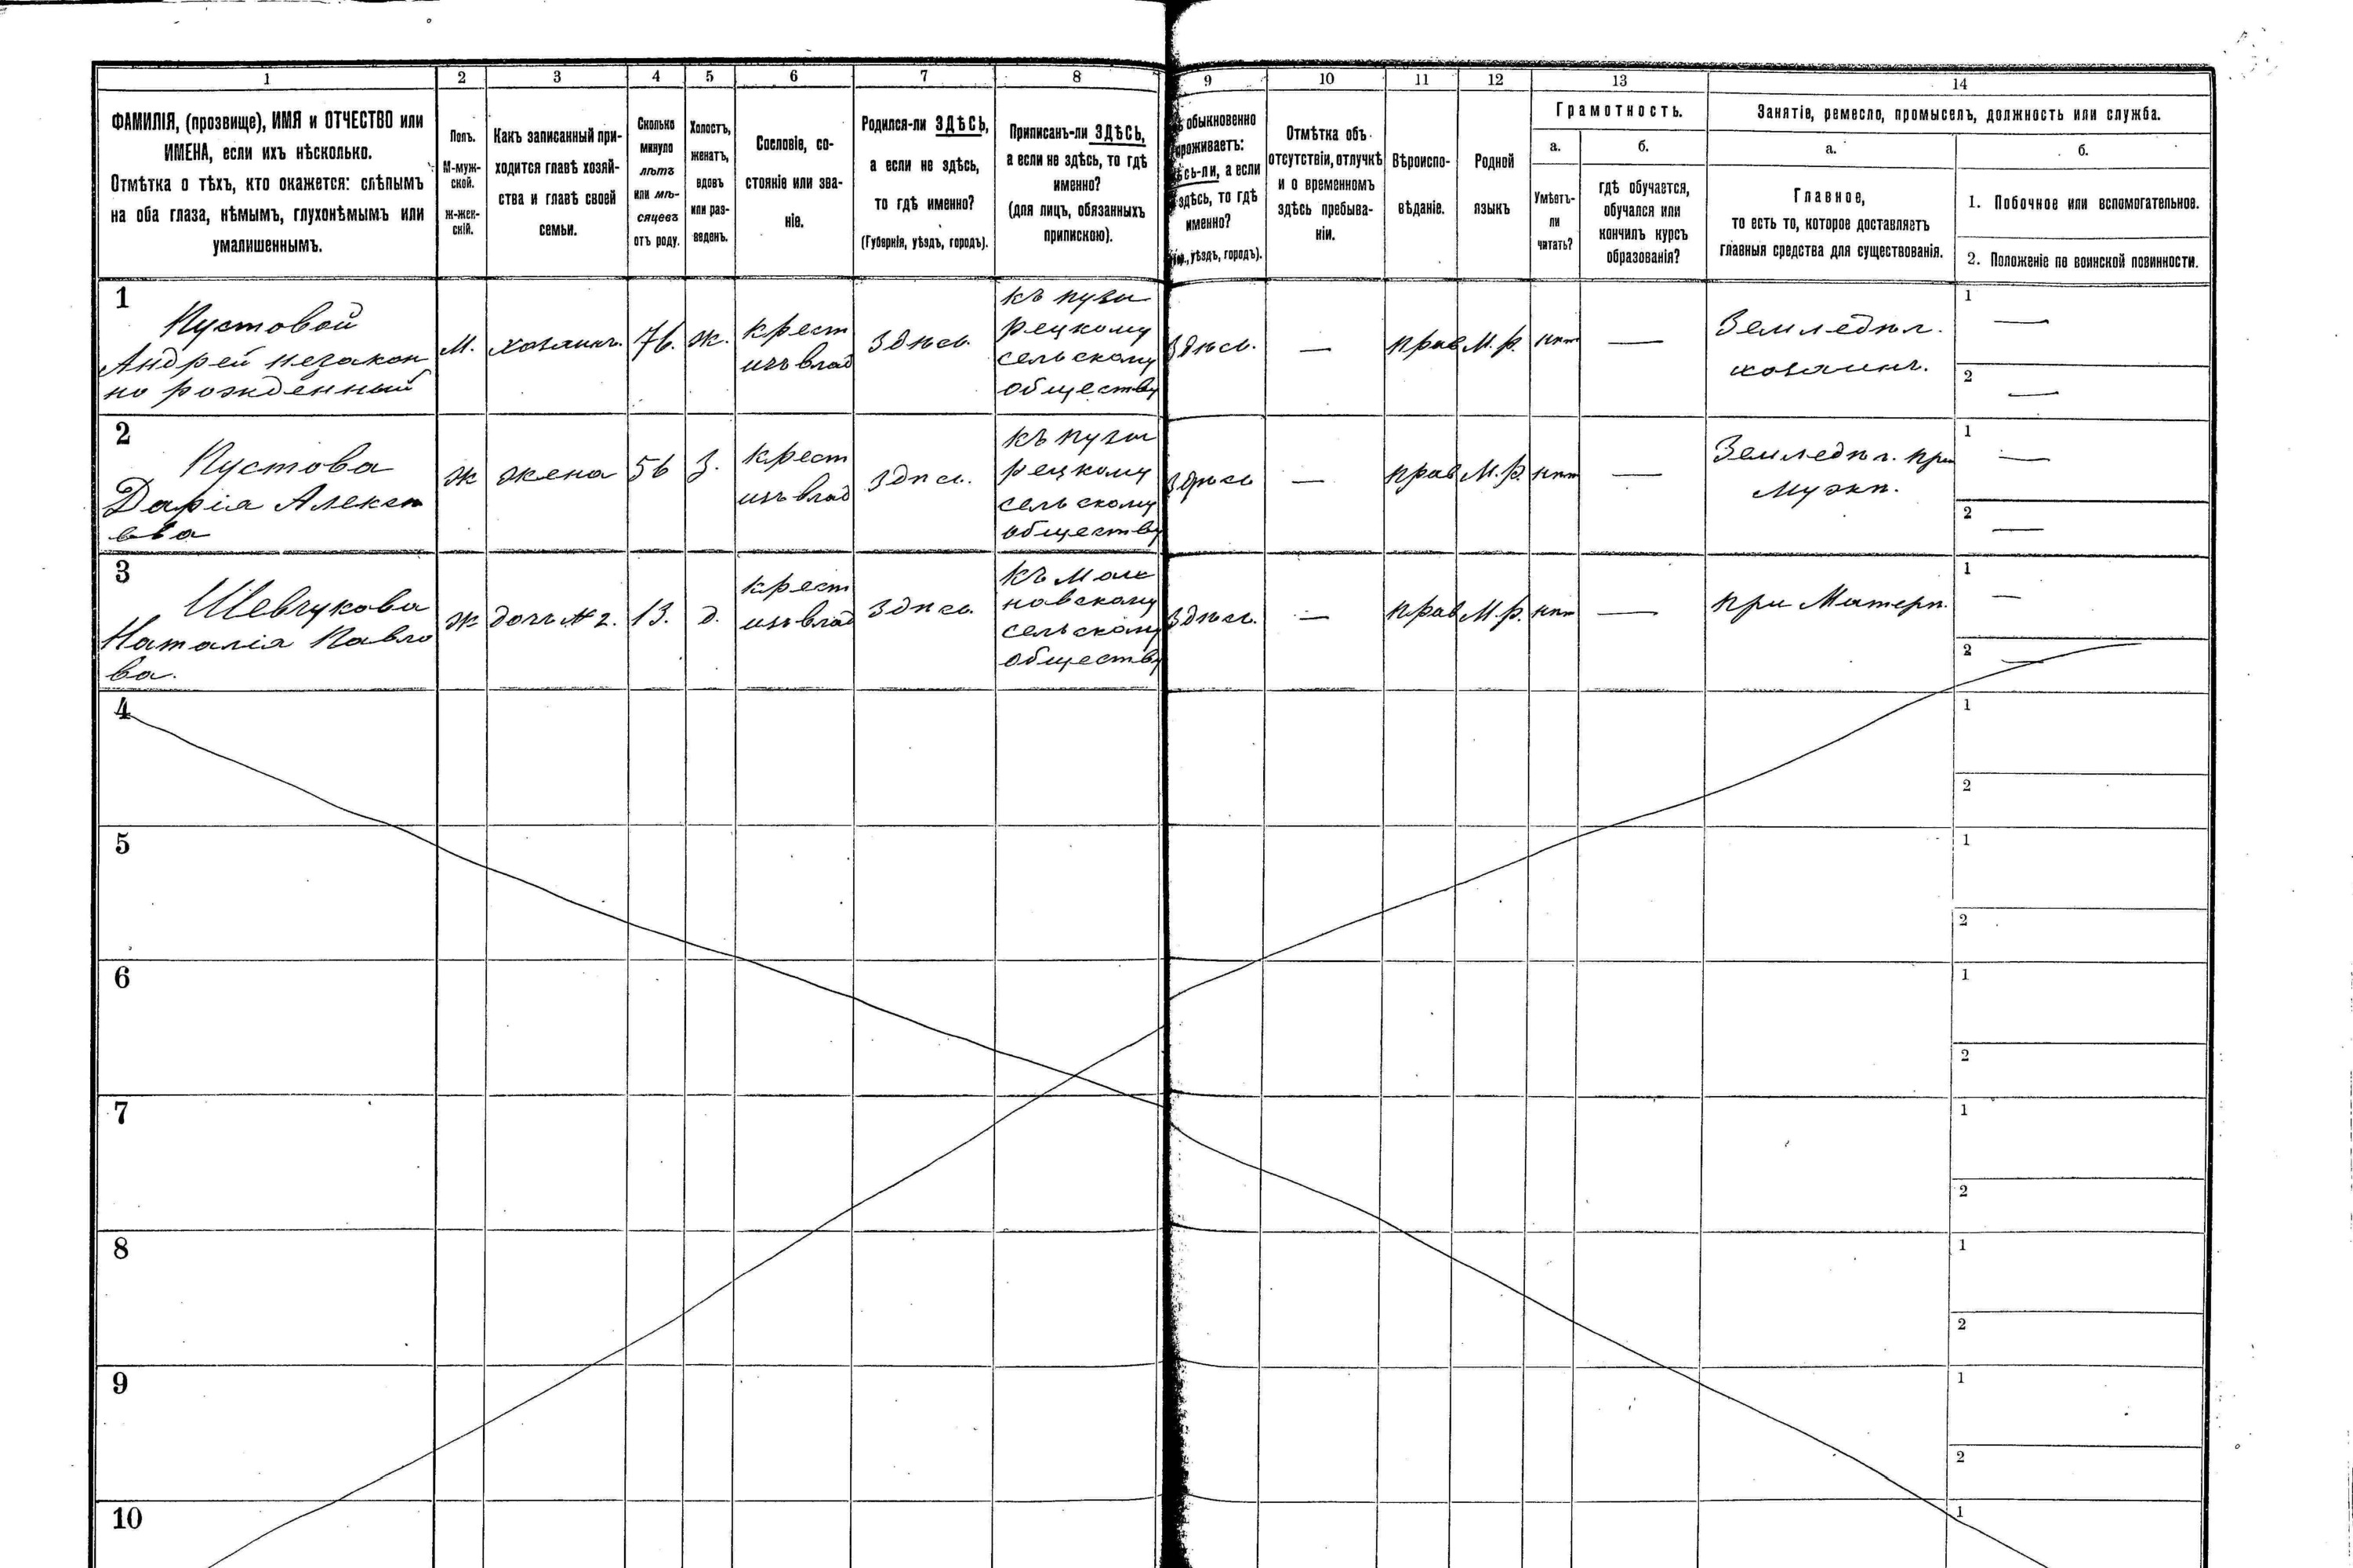 1 2 3 4 5 6 7 8 9 10 11 12 13 14
ФАМИЛІЯ, (прозвище), ИМЯ и ОТЧЕСТВО или
ИМЕНА, если ихъ нѣсколько.
Отмѣтка о тѣхъ, кто окажется: слѣпымъ
на оба глаза, нѣмымъ, глухонѣмымъ или
умалишеннымъ.
Полъ.
М-муж-
ской.
Ж-жен-
скій.
Какъ записанный при-
ходится главѣ хозяй-
ства и главѣ своей
семьи.
Сколько
минуло
лѣтъ
или мѣ-
сяцевъ
отъ роду.
Холостъ,
женатъ,
вдовъ
или раз-
веденъ.
Сословіе, со-
стояніе или зва-
ніе.
Родился-ли ЗДѢСЬ,
а если не здѣсь,
то гдѣ именно?
(Губернія, уѣздъ, городъ).
Приписанъ-ли ЗДѢСЬ,
а если не здѣсь, то гдѣ
именно?
(для лицъ, обязанныхъ
припискою).
обыкновенно
проживаетъ:
здѣсь-ли, а если
не здѣсь, то гдѣ
именно?
уѣздъ, городъ).
Отмѣтка объ
отсутствіи, отлучкѣ
и о временномъ
здѣсь пребыва-
ніи.
Вѣроиспо-
вѣданіе.
Родной
языкъ
Грамотность.
а.
Умѣетъ-
ли
читать?
б.
гдѣ обучается,
обучался или
кончилъ курсъ
образованія?
Занятіе, ремесло, промыселъ, должность или служба.
а.
Главное,
то есть то, которое доставляетъ
главныя средства для существованія.
б.
1. Побочное или вспомогательное.
2. Положеніе по воинской повинности.
1
Пустовой
Андрей незакон
но рожденный
М.
хозяинъ.
76.
ж.
крест
изъ влад
Здѣсь.
къ пузы
рецкому
сельскому
обществу
Здѣсь.
—
прав
М. р.
нѣт
—
Земледѣл.
хозяинъ.
1 —
2 —
2
Пустова
Дарія Алексѣ
ева
ж
жена
56
З.
крест
изъ влад
Здѣсь.
къ пузы
рецкому
сельскому
обществу
Здѣсь
—
прав
М. р.
нѣт
—
Земледѣл. при
Мужѣ.
1 —
2 —
3
Шевчукова
Наталія Павло
ва.
ж
дочь № 2.
13.
д.
крест
изъ влад
Здѣсь
къ
новскому
сельскому
обществу
Здѣсь.
—
прав
М. р.
нѣт
—
при Матери.
1 —
2 —
4
1
2
5
1
2
6
1
2
7
1
2
8
1
2
9
1
2
10
1